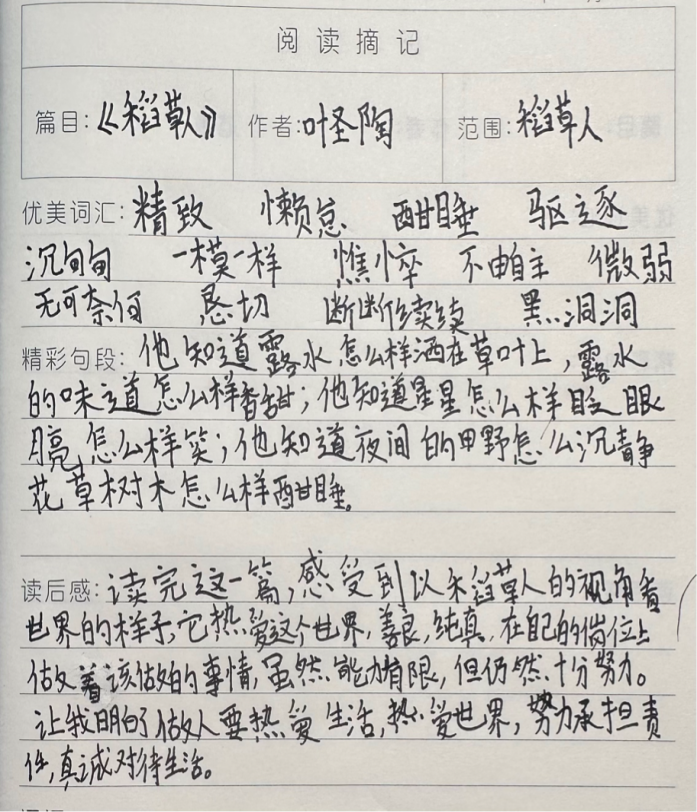 阅读摘记
篇目:《稻草人》 作者:叶圣陶 范围:稻草人
优美词汇: 精致 懒怠 酣睡 驱逐
沉甸甸 一模一样 憔悴 不由自主 微弱
无可奈何 恳切 断断续续 黑洞洞
精彩句段: 他知道露水怎么样洒在草叶上,露水
的味道怎么样香甜;他知道星星怎么样眨眼
月亮怎么样笑;他知道夜间的田野怎么沉静
花草树木怎么样酣睡。
读后感: 读完这一篇,感受到以禾稻草人的视角看
世界的样子,它热爱这个世界,善良,纯真,在自己的岗位上
做着该做的事情,虽然能力有限,但仍然十分努力。
让我明白了做人要热爱生活,热爱世界,努力承担责
任,真诚对待生活。